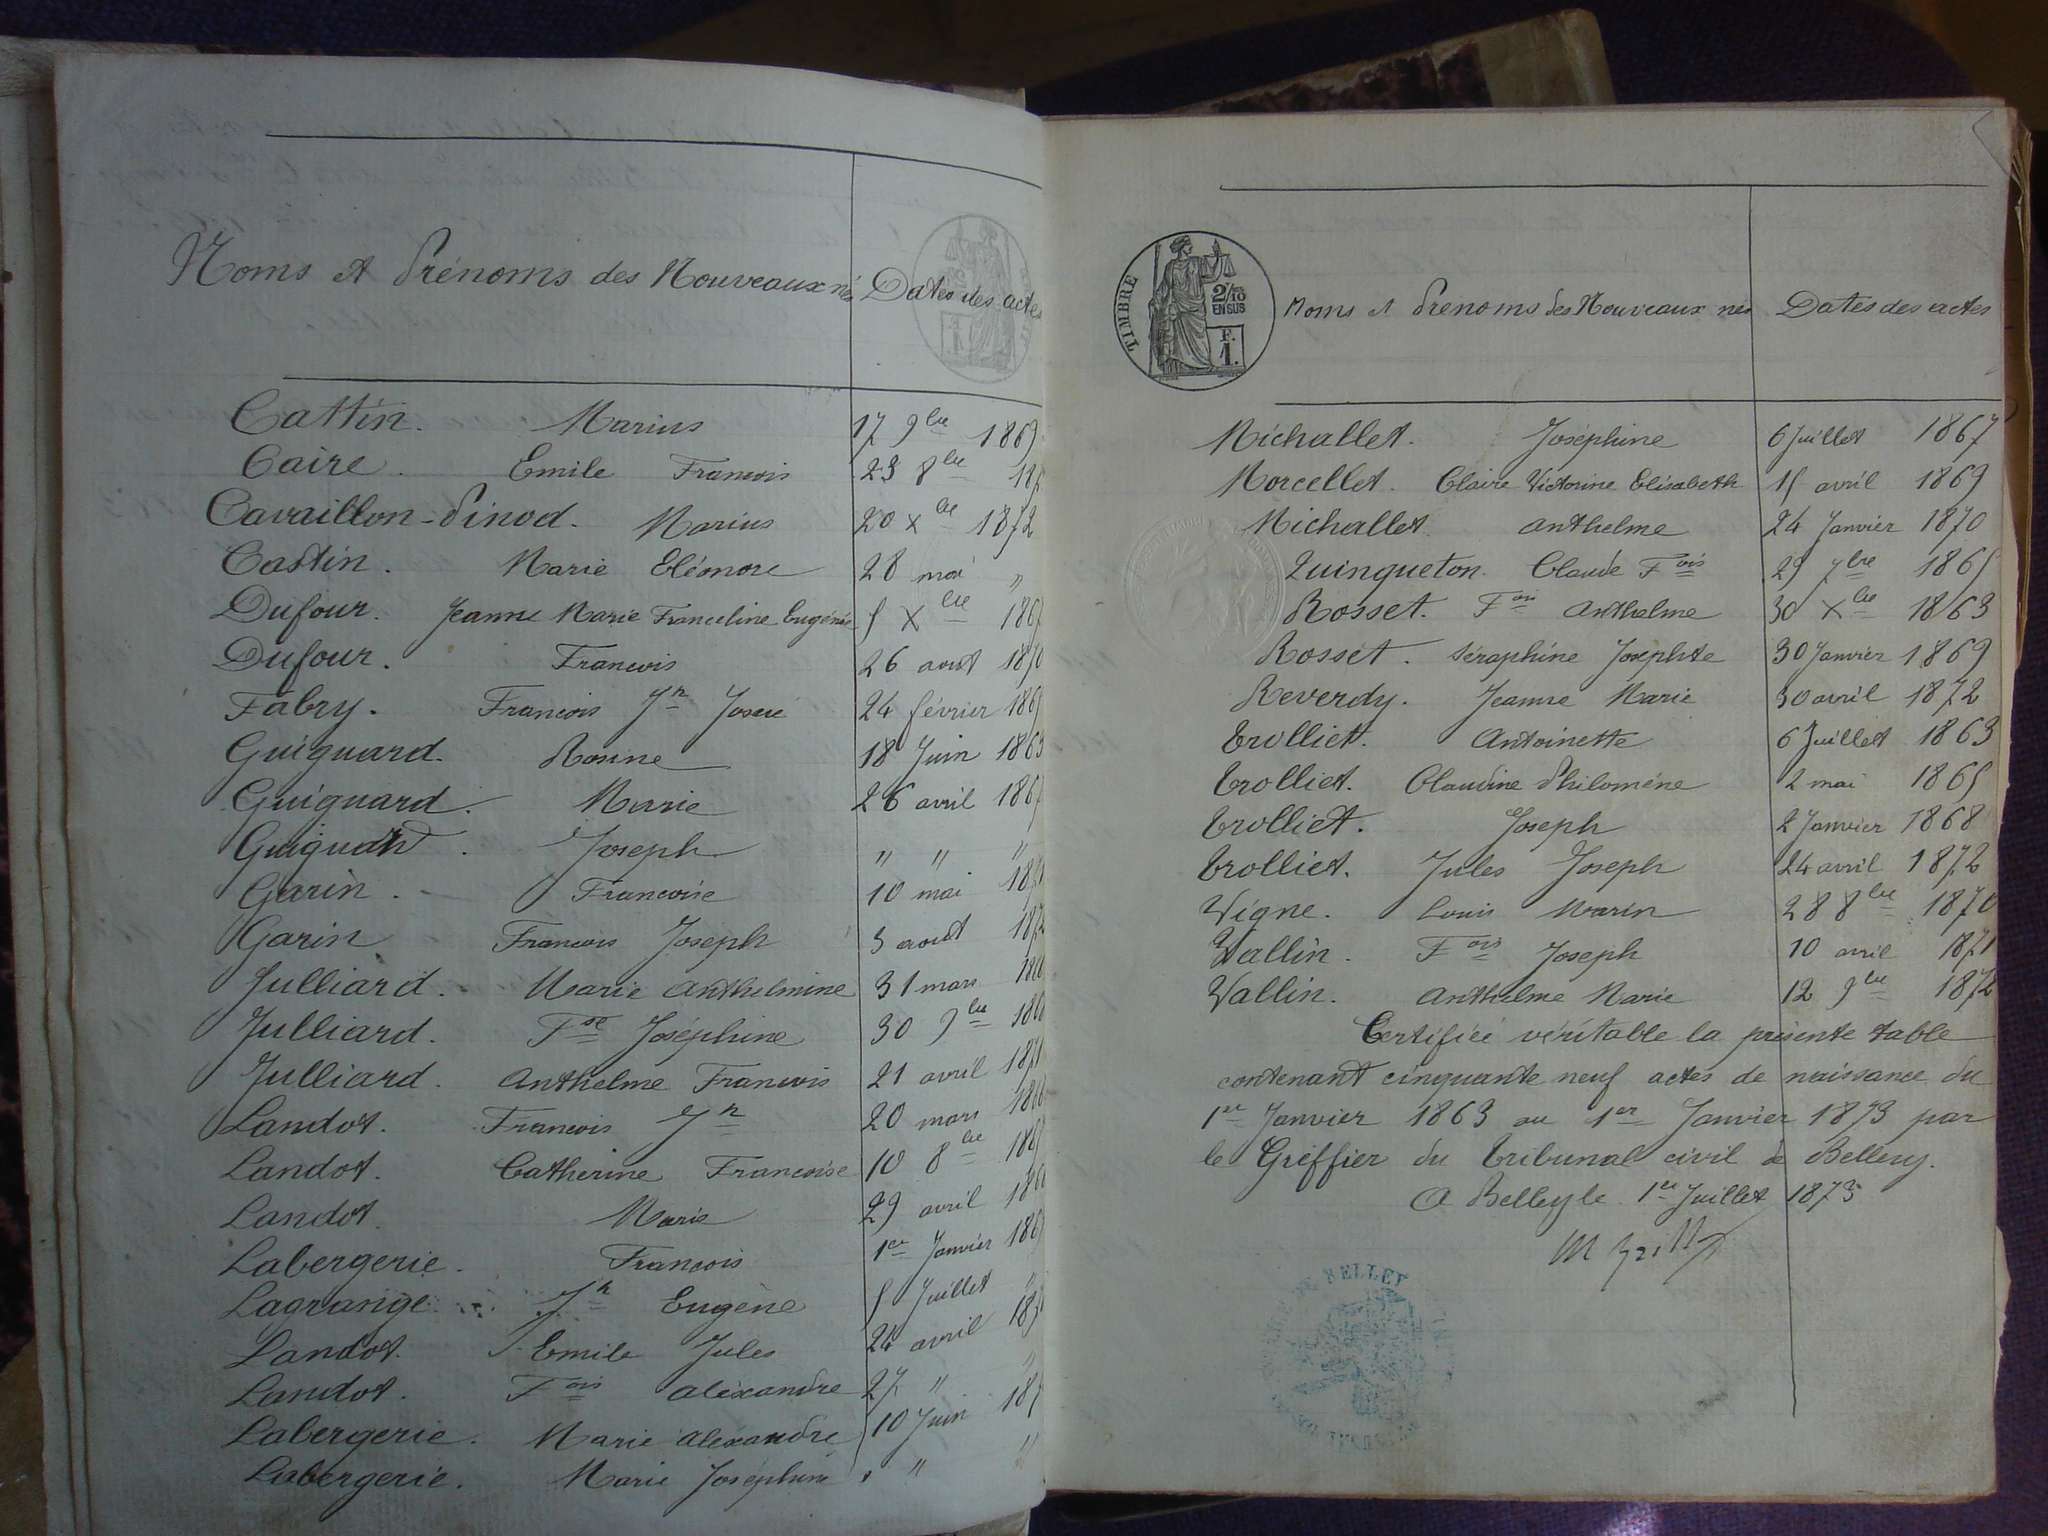 Noms et Prénoms des Nouveaux nés Dates des actes
Cattin. Marius 17 9bre 1869
Caire. Emile Francois 23 8bre
Cavaillon-Pinod. Marius 20 Xbre 1872
Castin. Marie Eléonore 28 mai "
Dufour. Jeanne Marie Franceline Eugénie 5 Xbre
Dufour. Francois 26 aout 1870
Fabry. Francois Jn 24 février
Guiguard. Rosine 18 Juin 1863
Guiguard. Marie 26 avril
Guiguard. Joseph " " "
Garin. Francoise 10 mai
Garin Francois Joseph 3 aout
Julliard. Marie Anthelmine 31 mars
Julliard. Fse Joséphine 30 9bre
Julliard. Anthelme Francois 21 avril
Landot. Francois Jn 20 mars
Landot. Catherine Francoise 10 8bre
Landot. Marie 29 avril
Labergerie. Francois 1er Janvier
Lagrange. Jn Eugène 5 Juillet "
Landot. Emile Jules 24 avril
Landot. Fois alexandre 27 " "
Labergerie. Marie alexandre 10 Juin
Labergerie. Marie Joséphine " " "
TIMBRE
2/10
EN SUS
F.
1.
Noms et Prenoms des Nouveaux nés Dates des actes
Michallet. Joséphine 6 Juillet 1867
Morcellet. Claire Victorine Elisabeth 15 avril 1869
Michallet. anthelme 24 Janvier 1870
Quinqueton. Claude Fois 29 7bre 1865
Rosset. Fois anthelme 30 Xbre 1863
Rosset. Séraphine Josephte 30 Janvier 1869
Reverdy. Jeanne Marie 30 avril 1872
Trolliet. Antoinette 6 Juillet 1863
Trolliet. Claudine Philomène 2 mai 1865
Trolliet. Joseph 2 Janvier 1868
Trolliet. Jules Joseph 24 avril 1872
Vigne. Louis Marin 28 8bre 1870
Vallin. Fois Joseph 10 avril 1871
Vallin. Anthelme Marie 12 9bre 1872
Certifiée véritable la présente table
contenant cinquante neuf actes de naissance du
1er Janvier 1863 au 1er Janvier 1873 par
le Greffier du Tribunal civil de Belley.
A Belley le 1er Juillet 1873
BELLEY